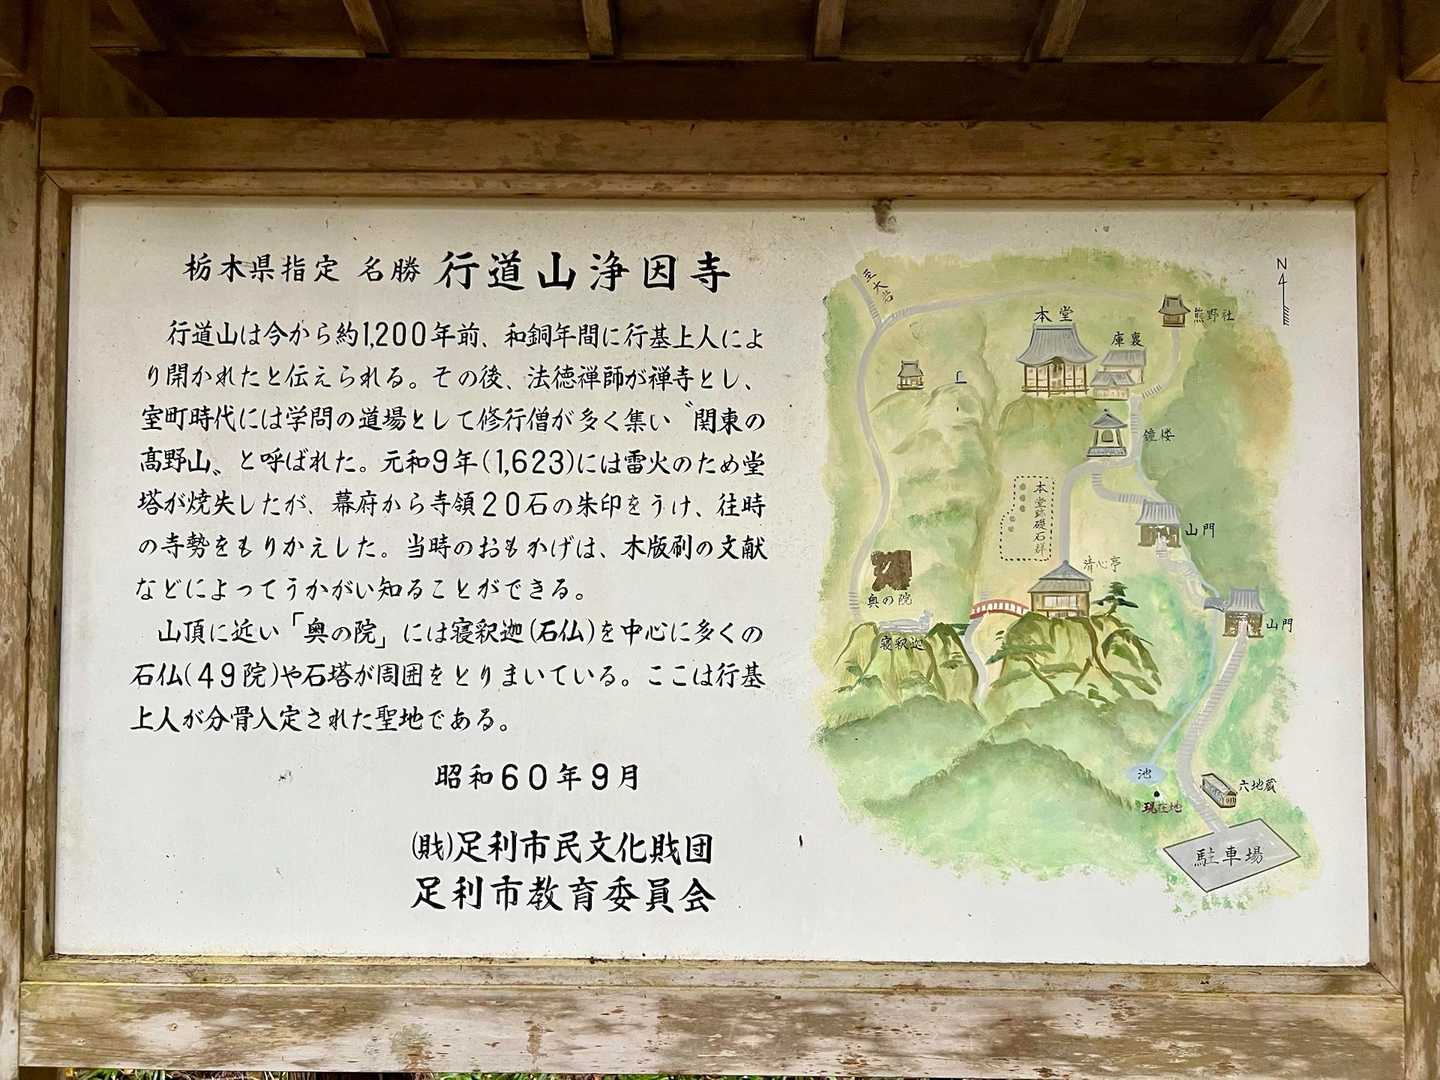 栃木県指定 名勝 行道山浄因寺
行道山は今から約1,200年前、和銅年間に行基上人によ
り開かれたと伝えられる。その後、法徳禅師が禅寺とし、
室町時代には学問の道場として修行僧が多く集い〝関東の
高野山〟と呼ばれた。元和9年(1,623)には雷火のため堂
塔が焼失したが、幕府から寺領20石の朱印をうけ、往時
の寺勢をもりかえした。当時のおもかげは、木版刷の文献
などによってうかがい知ることができる。
山頂に近い「奥の院」には寝釈迦(石仏)を中心に多くの
石仏(49院)や石塔が周囲をとりまいている。ここは行基
上人が分骨入定された聖地である。
昭和60年9月
(財)足利市民文化財団
足利市教育委員会
N
至大岩
熊野社
本堂
庫裏
鐘楼
本堂跡礎石群
山門
清心亭
奥の院
山門
寝釈迦
池
六地蔵
現在地
駐車場